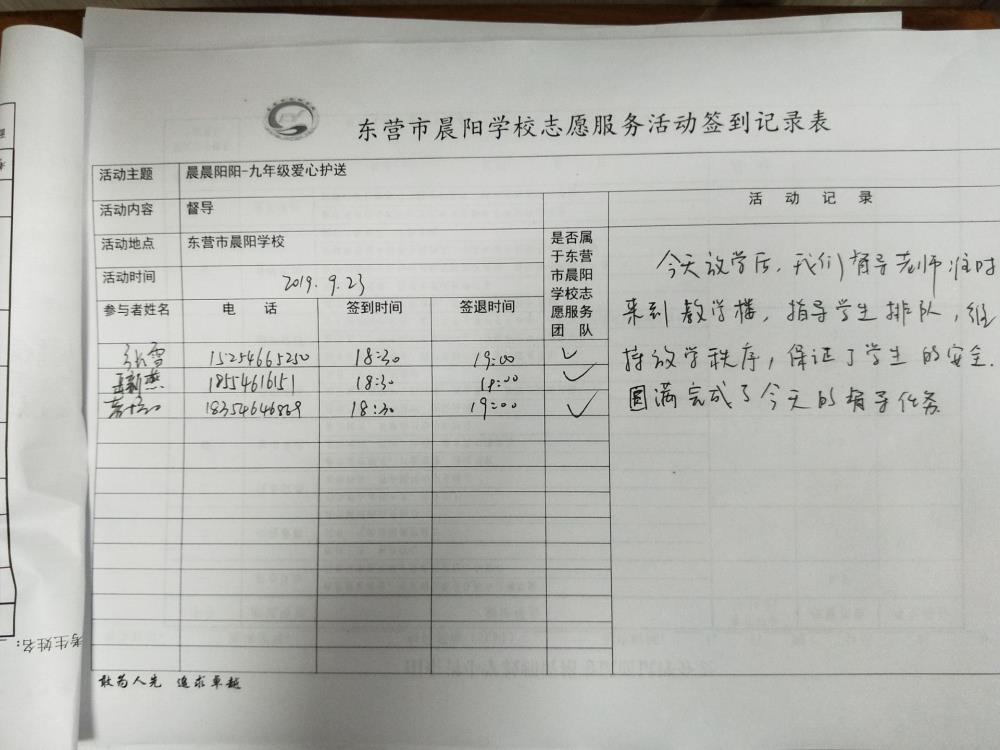 东营市晨阳学校志愿服务活动签到记录表
活动主题 晨晨阳阳-九年级爱心护送
活动内容 督导
活动地点 东营市晨阳学校
活动时间 2019.9.23
参与者姓名 电 话 签到时间 签退时间 是否属于东营市晨阳学校志愿服务团 队
张雪 15254665250 18:30 19:00 ✓
燕 1855461615​1 18:30 19:00 ✓
18354646869 18:30 19:00 ✓
活 动 记 录
今天放学后，我们督导老师准时
来到教学楼，指导学生排队，维
持放学秩序，保证了学生的安全.
圆满完成了今天的督导任务
敢为人先 追求卓越
考生姓名：